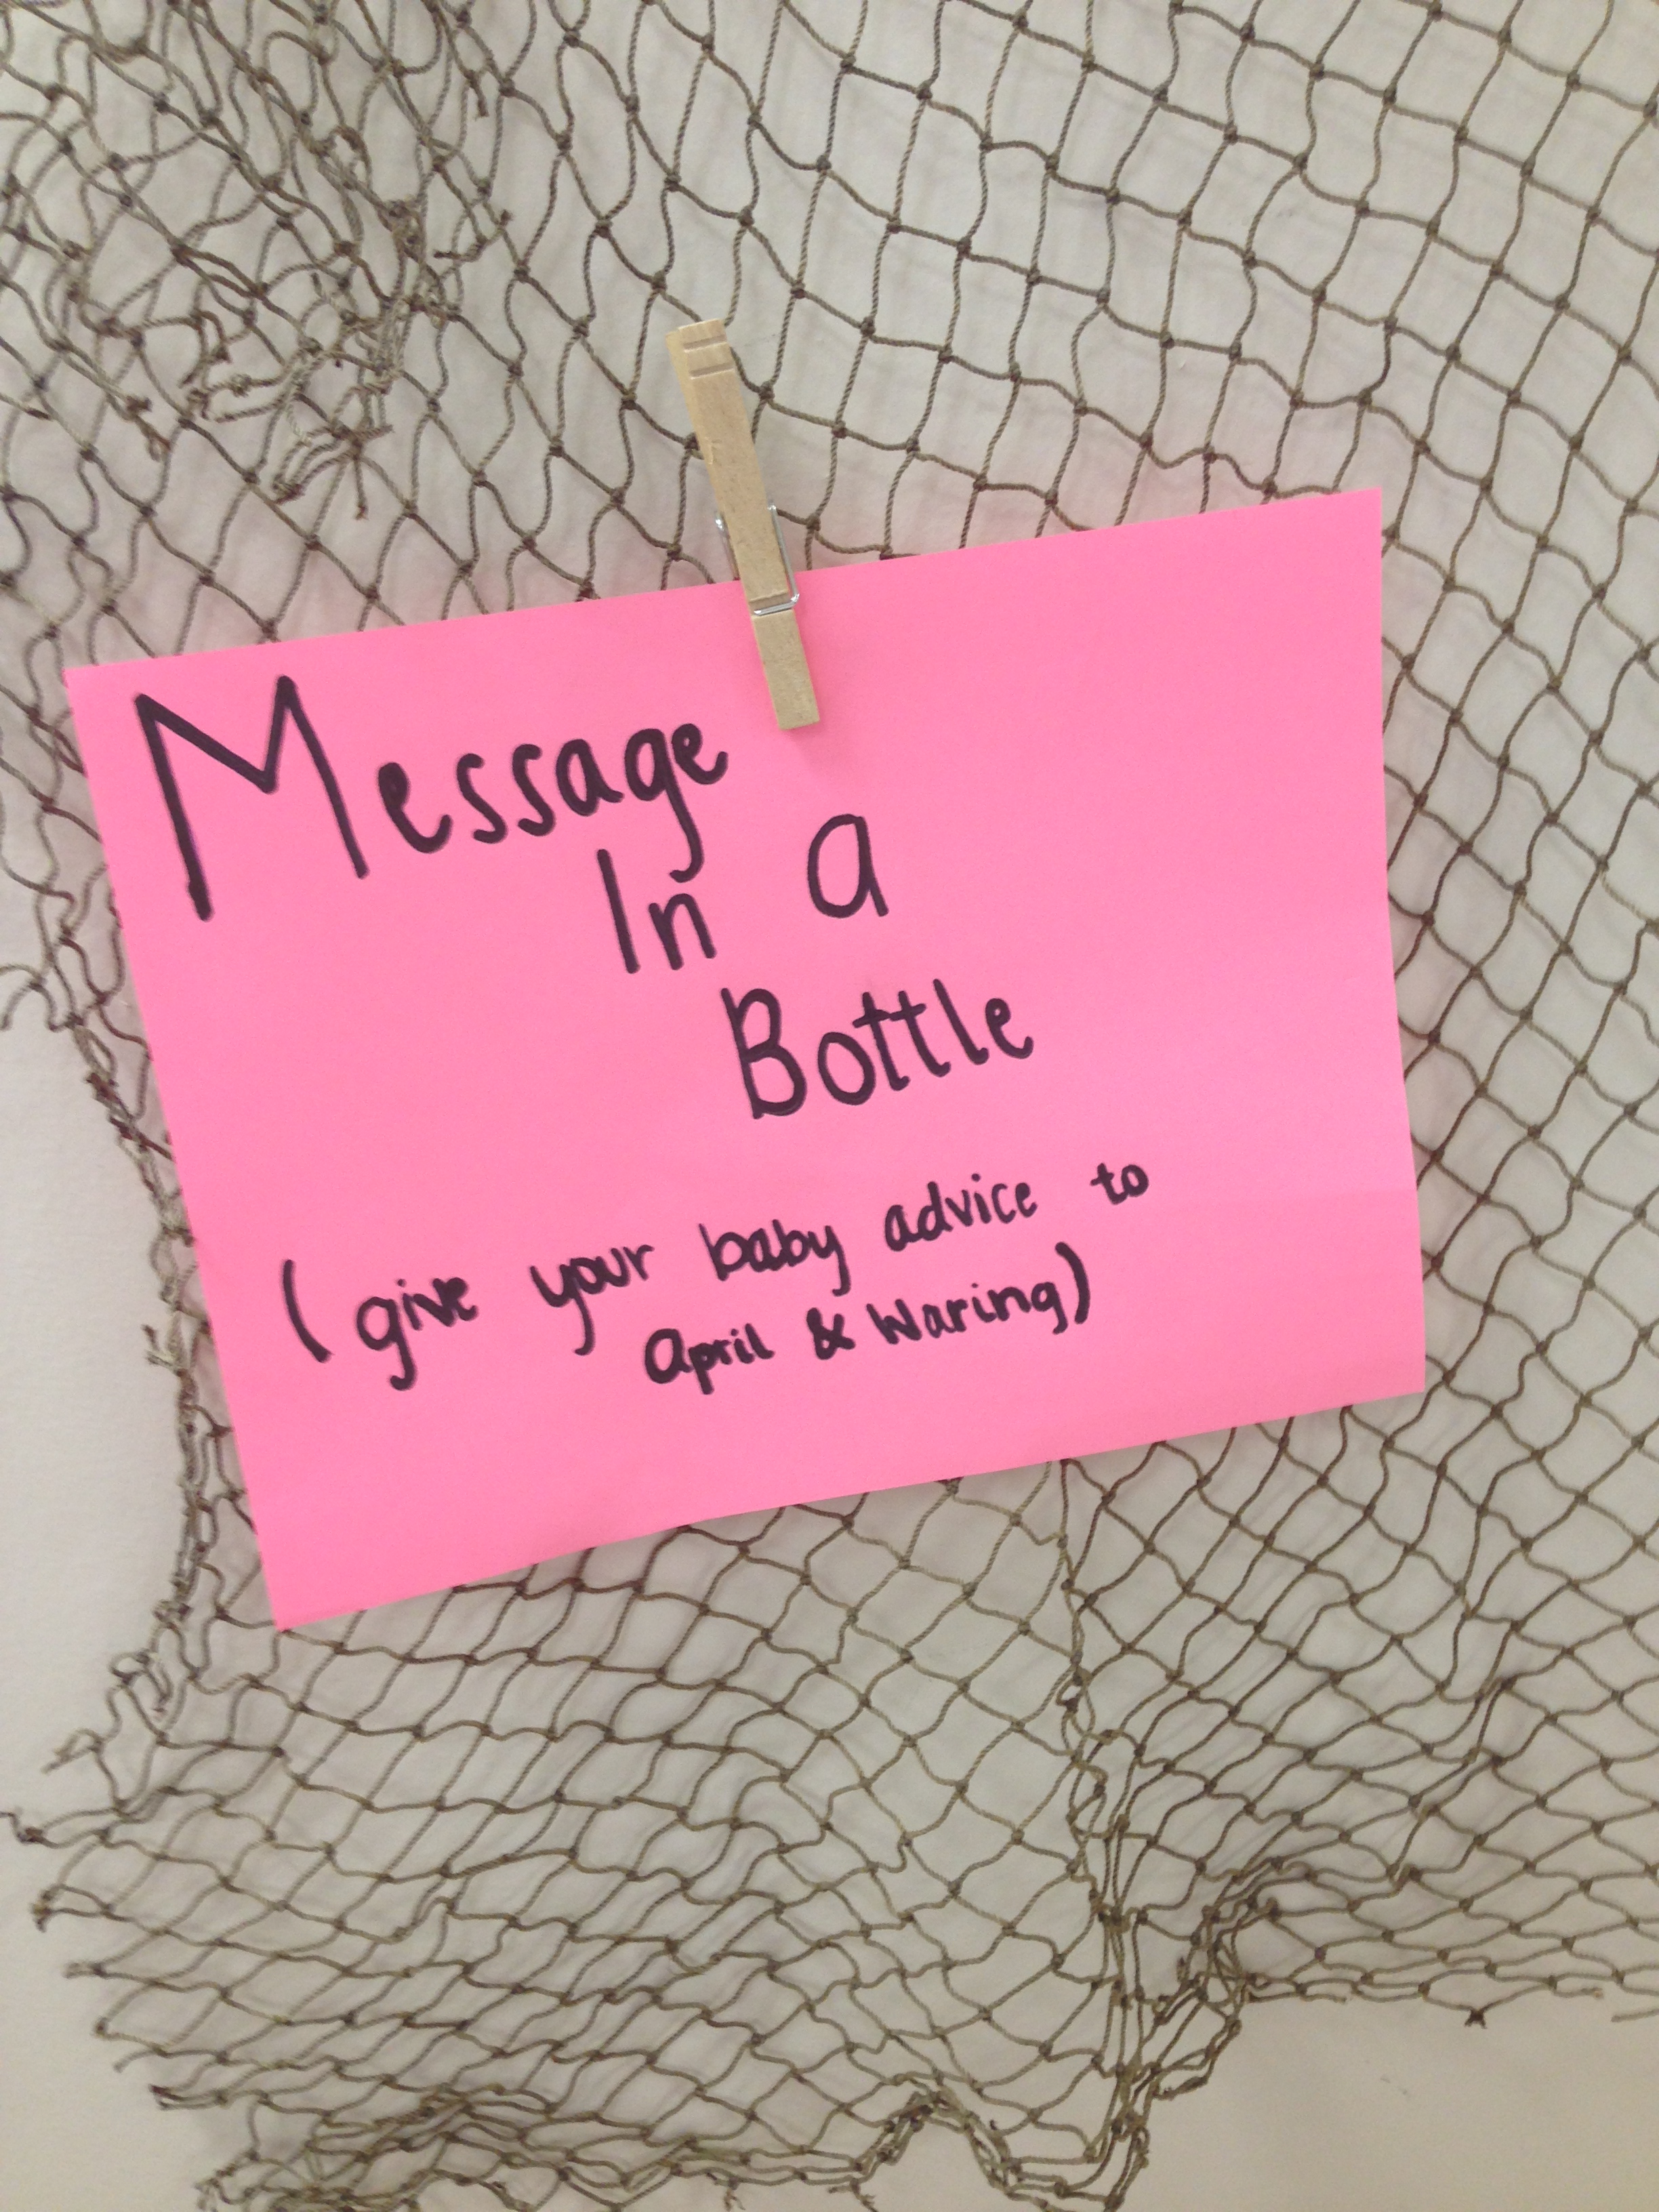 Message
In a
Bottle
(give your baby advice to
April & Waring)